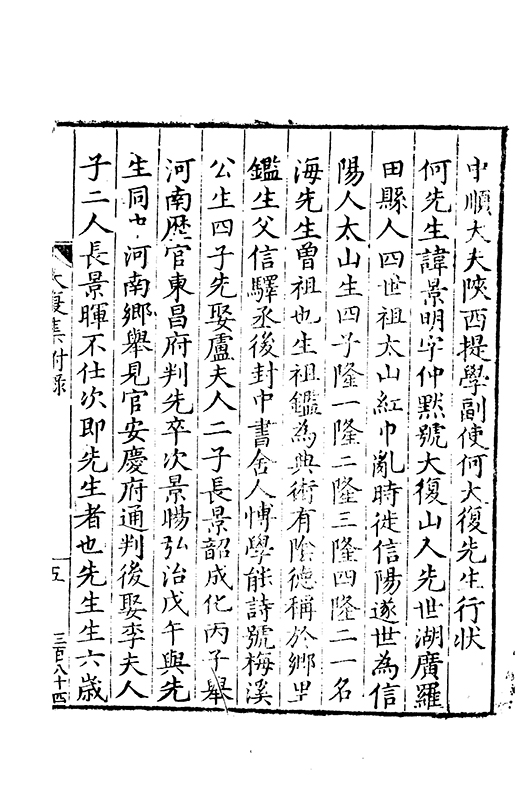 中順大夫陝西提學副使何大復先生行狀
何先生諱景明字仲默號大復山人先世湖廣羅
田縣人四世祖太山紅巾亂時徙信陽遂世為信
陽人太山生四子隆一隆二隆三隆四隆二一名
海先生曽祖也生祖鑑為典術有陰德稱於鄉里
鑑生父信驛丞後封中書舍人慱學能詩號梅溪
公生四子先娶盧夫人二子長景韶成化丙子舉
河南歷官東昌府判先卒次景暘弘治戊午與先
生同 河南鄉舉見官安慶府通判後娶李夫人
子二人長景暉不仕次即先生者也先生生六歲
大復集附錄
五
三百八十四